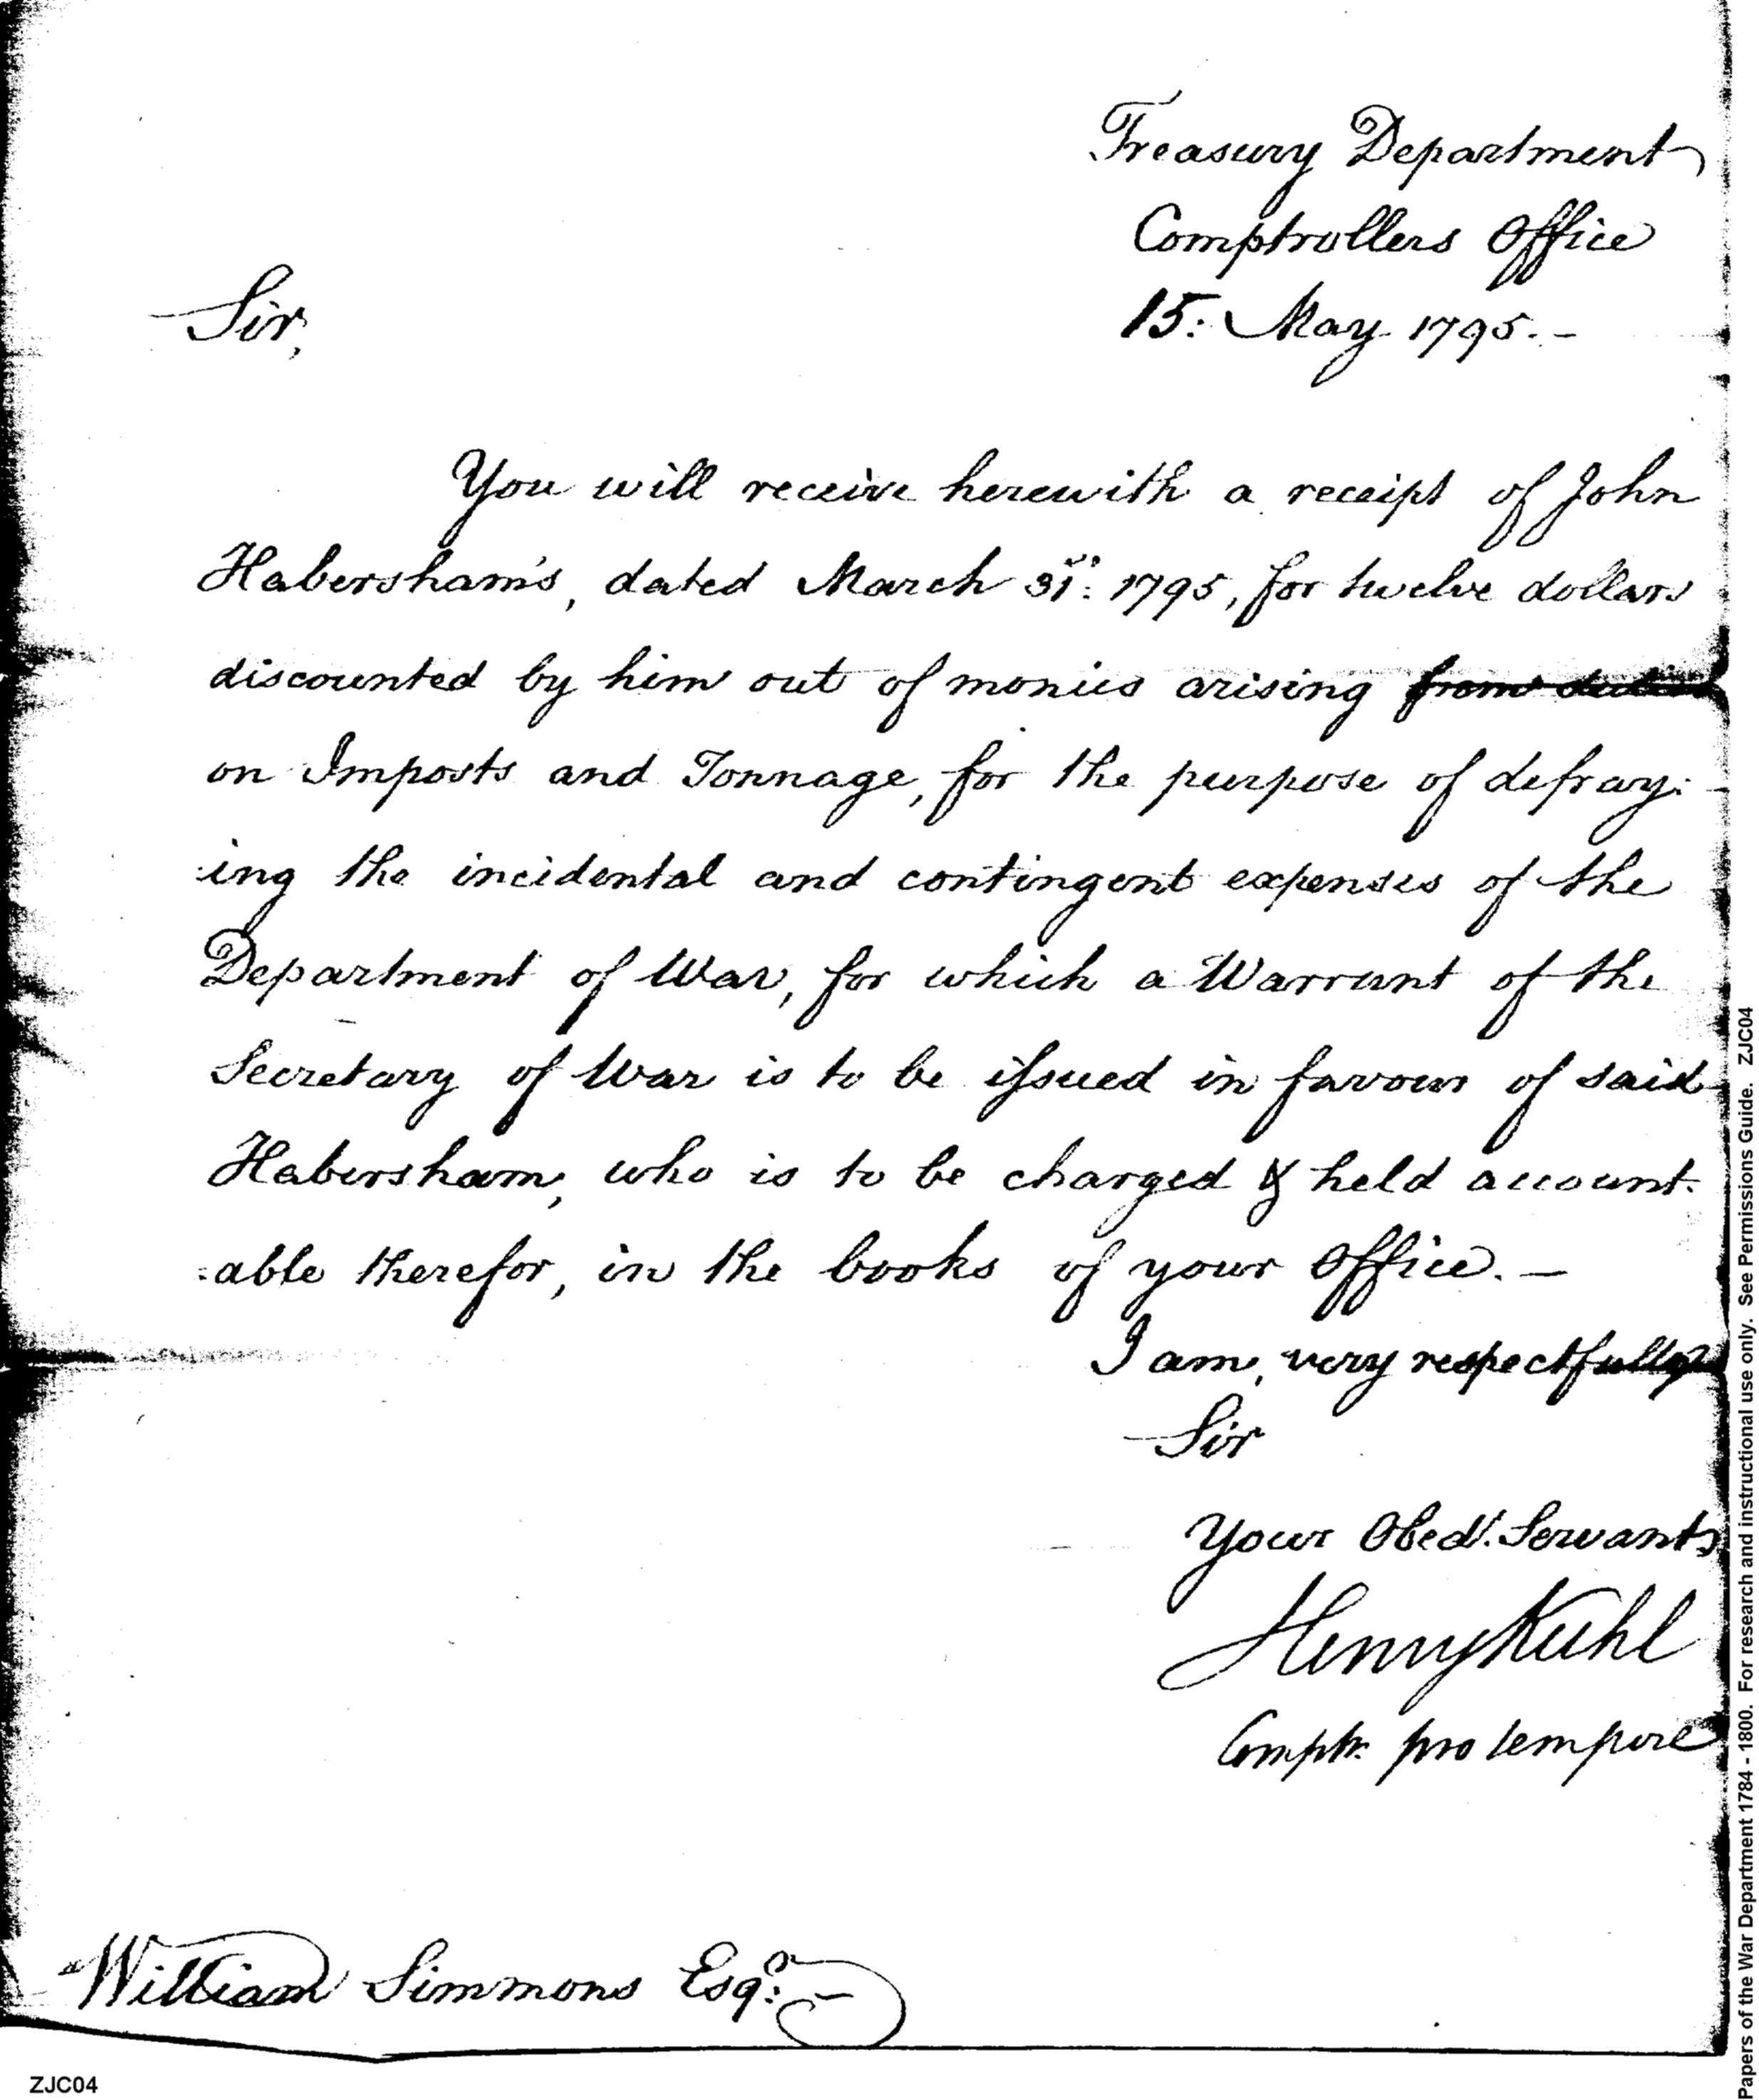 Treasury Department
Comptrollers Office
15: May 1795.-
Sir,
You will receive herewith a receipt of John
Habersham's, dated March 31st: 1795, for twelve dollars
discounted by him out of monies arising from duties
on Imposts and Tonnage, for the purpose of defray:
:ing the incidental and contingent expenses of the
Department of War, for which a Warrant of the
Secretary of War is to be issued in favour of said
Habersham, who is to be charged & held account:
:able therefor, in the books of your Office. —
I am, very respectfully
Sir
Your Obedt. Servant
Henry Kuhl
Comptr. pro tempore
William Simmons Esqr: -
ZJC04
Papers of the War Department 1784 - 1800. For research and instructional use only. See Permissions Guide. ZJC04